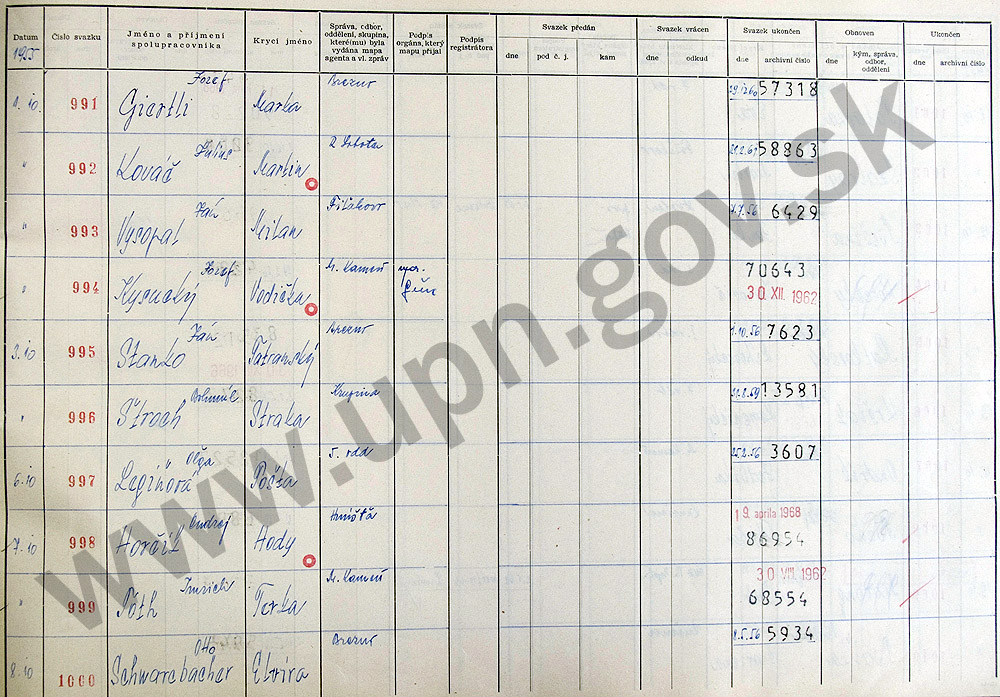 Datum Číslo svazku Jméno a příjmení spolupracovníka Krycí jméno Správa, odbor, oddělení, skupina, které(mu) byla vydána mapa agenta a vl. zpráv Podpis orgána, který mapu přijal Podpis registrátora Svazek předán Svazek vrácen Svazek ukončen Obnoven Ukončen
dne pod č. j. kam dne odkud dne archivní číslo dne kým, správa, odbor, oddělení dne archivní číslo
1955
991 Giertli Jozef Marka Brezno 57318
" 992 Kováč Július Martin R Sobota 58863
" 993 Vysopal Ján Milan Fiľakovo 7.7.56 6429
" 994 Kysucký Jozef Vodička M. Kameň 70643
30 XII. 1962
3.10 995 Stanko Ján Tatranský Brezno 1.10.56 7623
" 996 Štroch Bohumil Straka Krupina 13581
6.10 997 Olga Pošta 5. odd 25.2.56 3607
7.10 998 Ondrej Hody Hnúšťa 19. apríla 1968
86954
" 999 Tóth Imrich Terka M. Kameň 30 VII. 1962
68554
8.10 1000 Schwarcbacher Otto Elvira Brezno 5934
www.upn.gov.sk